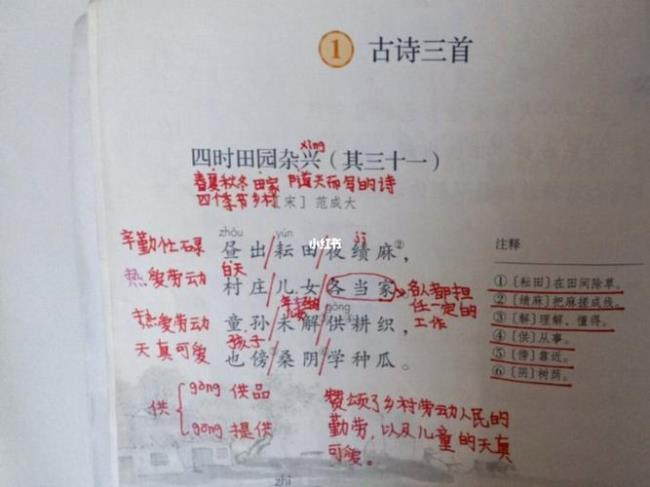 1 古诗三首
xìng
四时田园杂兴（其三十一）
春夏秋冬 田家 随天而写的诗
四个季节 乡村 [宋] 范成大
zhòu yún jì
辛勤忙碌 昼出/耘田/夜绩麻②，
小红书
白天
热爱劳动 村庄/儿女/各当家 各人都担任一定的工作
gòng
热爱劳动 童孙/未解/供耕织，
孩子
天真可爱 也傍/桑阴/学种瓜。
注释
①〔耘田〕在田间除草。
②〔绩麻〕把麻搓成线。
③〔解〕理解，懂得。
④〔供〕从事。
⑤〔傍〕靠近。
⑥〔阴〕树荫。
供
gòng 供品
gōng 提供
赞颂了乡村劳动人民的
勤劳，以及儿童的天真
可爱。
zhī